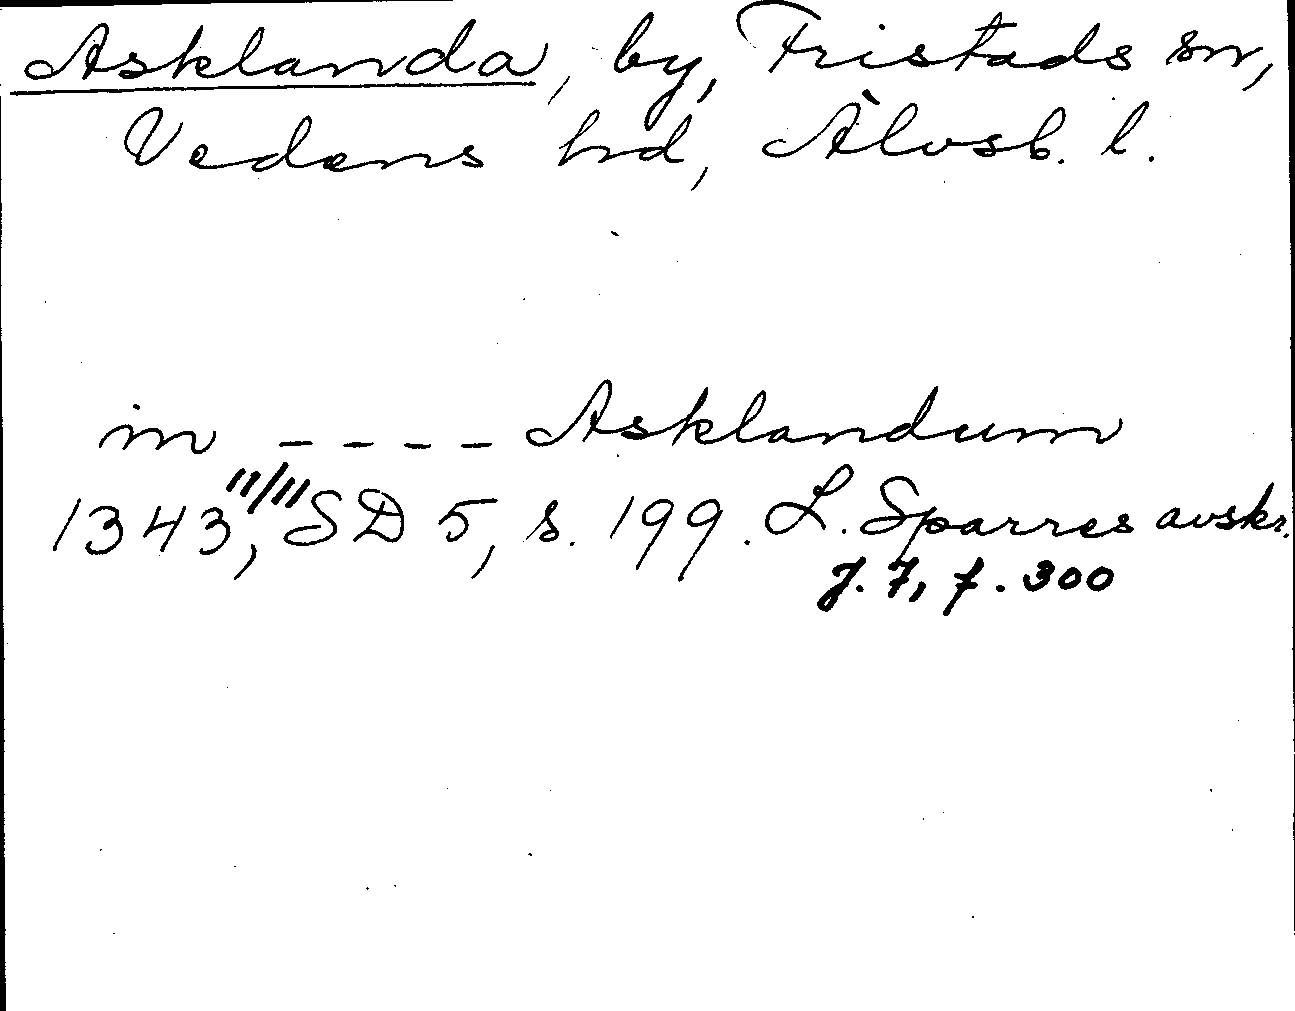 Asklanda, by, Fristads sn,
Vedens hd, Älvsb. l.
in ---- Asklandum
1343, 11/11 SD 5, s. 199. L. Sparres avskr.
J. 7, f. 300